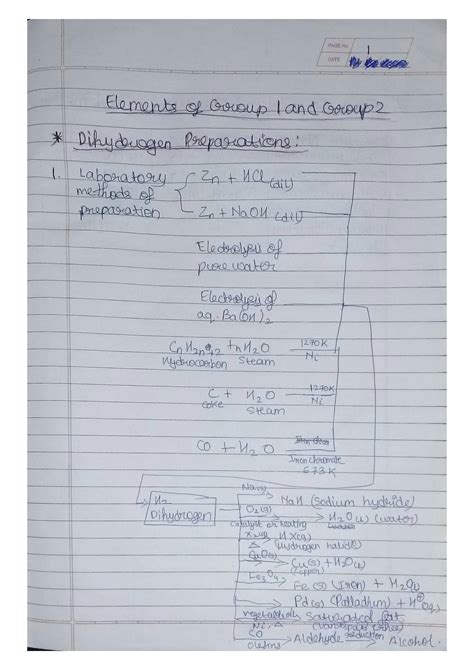 PAGE No. 1
DATE
Elements of Group 1 and Group 2
* Dihydrogen Preparations:
1. Laboratory methods of preparation
Zn + HCl (dil)
Zn + NaOH (dil)
Electrolysis of
pure water
Electrolysis of
aq. Ba(OH)2
CnH2n+2 + nH2O 1270K Ni
Hydrocarbon Steam
C + H2O 1270K Ni
Coke Steam
CO + H2O
Iron chromate
673K
H2
Dihydrogen
Na(s)
NaH (Sodium hydride)
O2(g)
H2O(l) (water)
catalyst or heating
X2(g) HX(g)
Δ (Hydrogen halide)
CuO(s) Cu(s) + H2O(l)
(copper)
Fe3O4
Fe(s) (Iron) + H2O(l)
Pd(s) (Palladium) + H
Saturated fat
Ni, Δ
CO
olefins Aldehyde reduction Alcohol.